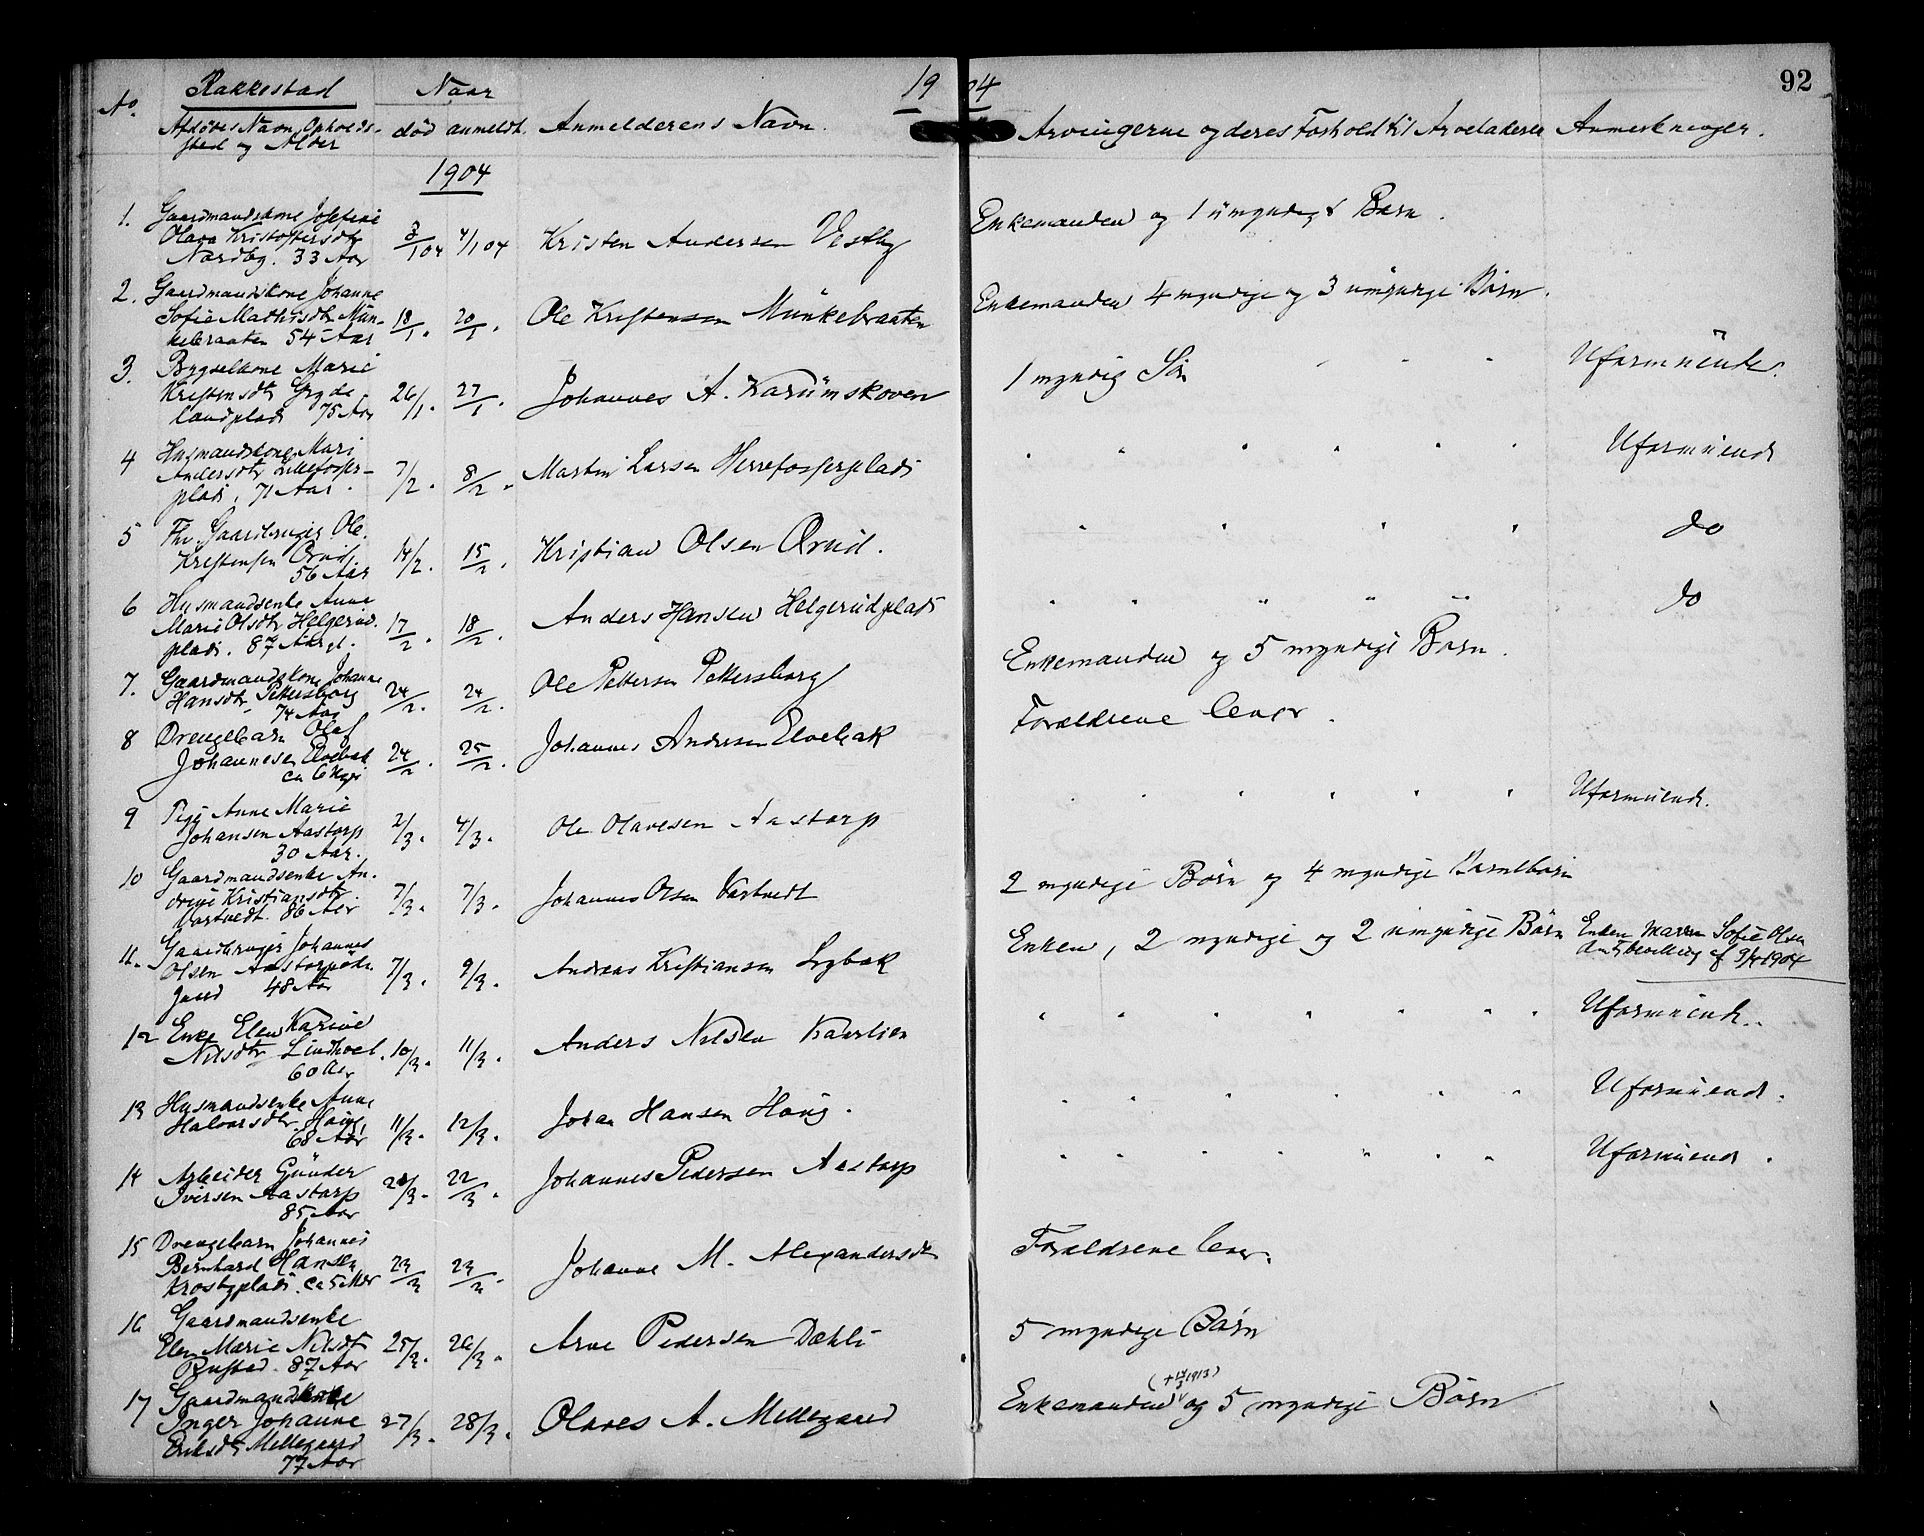 19 04
92
No. Rakkestad Naar
Afdødes Navn, Opholds-
sted og Alder
død anmeldt. Anmelderens Navn. Arvingerne og deres Forhold til Arveladeren Anmerkninger.
1904
1. Gaardmandskone Josefine
Olava Kristoffersdtr
Nordby. 33 Aar 3/1 04 4/1 04 Kristen Andersen Vestby Enkemanden og 1 umyndigt Barn.
2. Gaardmandskone Johanne
Sofie Mathisdtr Mün-
kebraaten 54 Aar 18/1. 20/1. Ole Kristensen Münkebraaten Enkemanden 4 myndige og 3 umyndige Børn.
3. Bygselkone Marie
Kristensdtr Gryde-
landplads 75 Aar 26/1. 27/1. Johannes A. Karümskoven 1 myndig Søn " " " Uformüende.
4 Husmandskone Mari
Andersdtr Lillefosser-
plads, 71 Aar. 7/2. 8/2. Martin Larsen Herrefosserplads " " " " " " Uformüende
5 Fhv. Gaardbruger Ole
Kristensen Örud,
56 Aar 14/2. 15/2. Kristian Olsen Örud. " " " " do
6 Husmandsenke Anne
Marie Olsdtr Helgerud-
plads. 87 Aar gl. 17/2. 18/2. Anders Hansen Helgerüdplads " " " " " do
7. Gaardmandskone Johanne
Hansdtr, Pettersborg
74 Aar 24/2. 24/2. Ole Pettersen Pettersborg Enkemanden og 5 myndige Børn.
8 Drengebarn Olaf
Johannesen Elvebak
ca 6 Uger 24/2. 25/2. Johannes Andersen Elvebak Forældrene lever.
9 Pige Anne Marie
Johansen Aastorp
30 Aar. 2/3. 4/3. Ole Olavesen Aastorp " " " " " " Uformüende.
10 Gaardmandsenke An-
drine Kristiansdtr
Vartvedt. 86 Aar 7/3. 7/3. Johannes Olsen Vartvedt 2 myndige Børn og 4 myndige Barnebørn
11. Gaardbruger Johannes
Olsen Aastorpøde-
gaard 48 Aar 7/3. 9/3. Andreas Kristiansen Lybak Enken, 2 myndige og 2 umyndige Børn Enken Maren Sofie Olsen
bevilling af 9/4 1904
12 Enke Elen Karine
Nilsdtr Lindhoel.
60 Aar 10/3. 11/3. Anders Nilsen Kaarlien " " " " " " " Uformüende.
13 Husmandsenke Anne
Halvorsdtr Haug,
68 Aar 11/3. 12/3. Johan Hansen Haug. " " " " " " Uformüende.
14 Arbeider Günder
Iversen Aastorp
85 Aar 21/3. 22/3. Johannes Pedersen Aastorp " " " " " " " Uformüende.
15 Drengebarn Johannes
Bernhard Hansen
Krosbyplads. ca 5 Mdr 23/3 23/3. Johanne M. Alexandersdtr Forældrene lever.
16 Gaardmandsenke
Elen Marie Nilsdtr
Rustad. 87 Aar 25/3. 26/3. Arve Pedersen Dæhli 5 myndige Børn
17 Gaardmandskone
Inger Johanne
Eriksdtr Mellegaard
77 Aar 27/3. 28/3. Olaves A. Mellegaard Enkemanden (+ 14/3 1913) og 5 myndige Børn